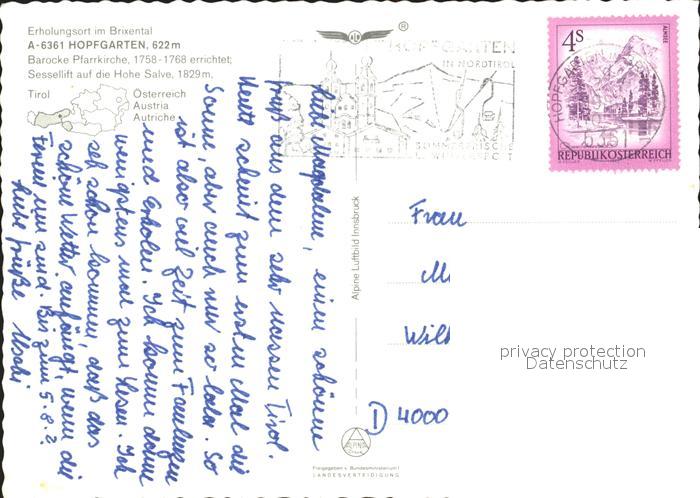 Erholungsort im Brixental
A-6361 HOPFGARTEN, 622 m
Barocke Pfarrkirche, 1758-1768 errichtet;
Sessellift auf die Hohe Salve, 1829 m,
Tirol
Österreich
Austria
Autriche
®
HOPFGARTEN
IN NORDTIROL
SOMMERFRISCHE
WINTERSPORT
4S
ALMSEE
REPUBLIK ÖSTERREICH
Liebe Magdalena, einen schönen
Gruß aus dem sehr nassen Tirol.
Heute scheint zum ersten Mal die
Sonne, aber auch nur so lala. So
ist also viel Zeit zum Faulenzen
und Erholen. Ich komme dann
wenigstens mal zum Lesen. Ich
seh schon kommen, daß das
schöne Wetter anfängt, wenn die
Ferien um sind. Bis zum 5.8.?
Liebe Grüße Uschi
Alpine Luftbild Innsbruck
Frau
M
Wilh
D 4000
privacy protection
Datenschutz
ALPINE
Freigegeben v. Bundesministerium f.
LANDESVERTEIDIGUNG